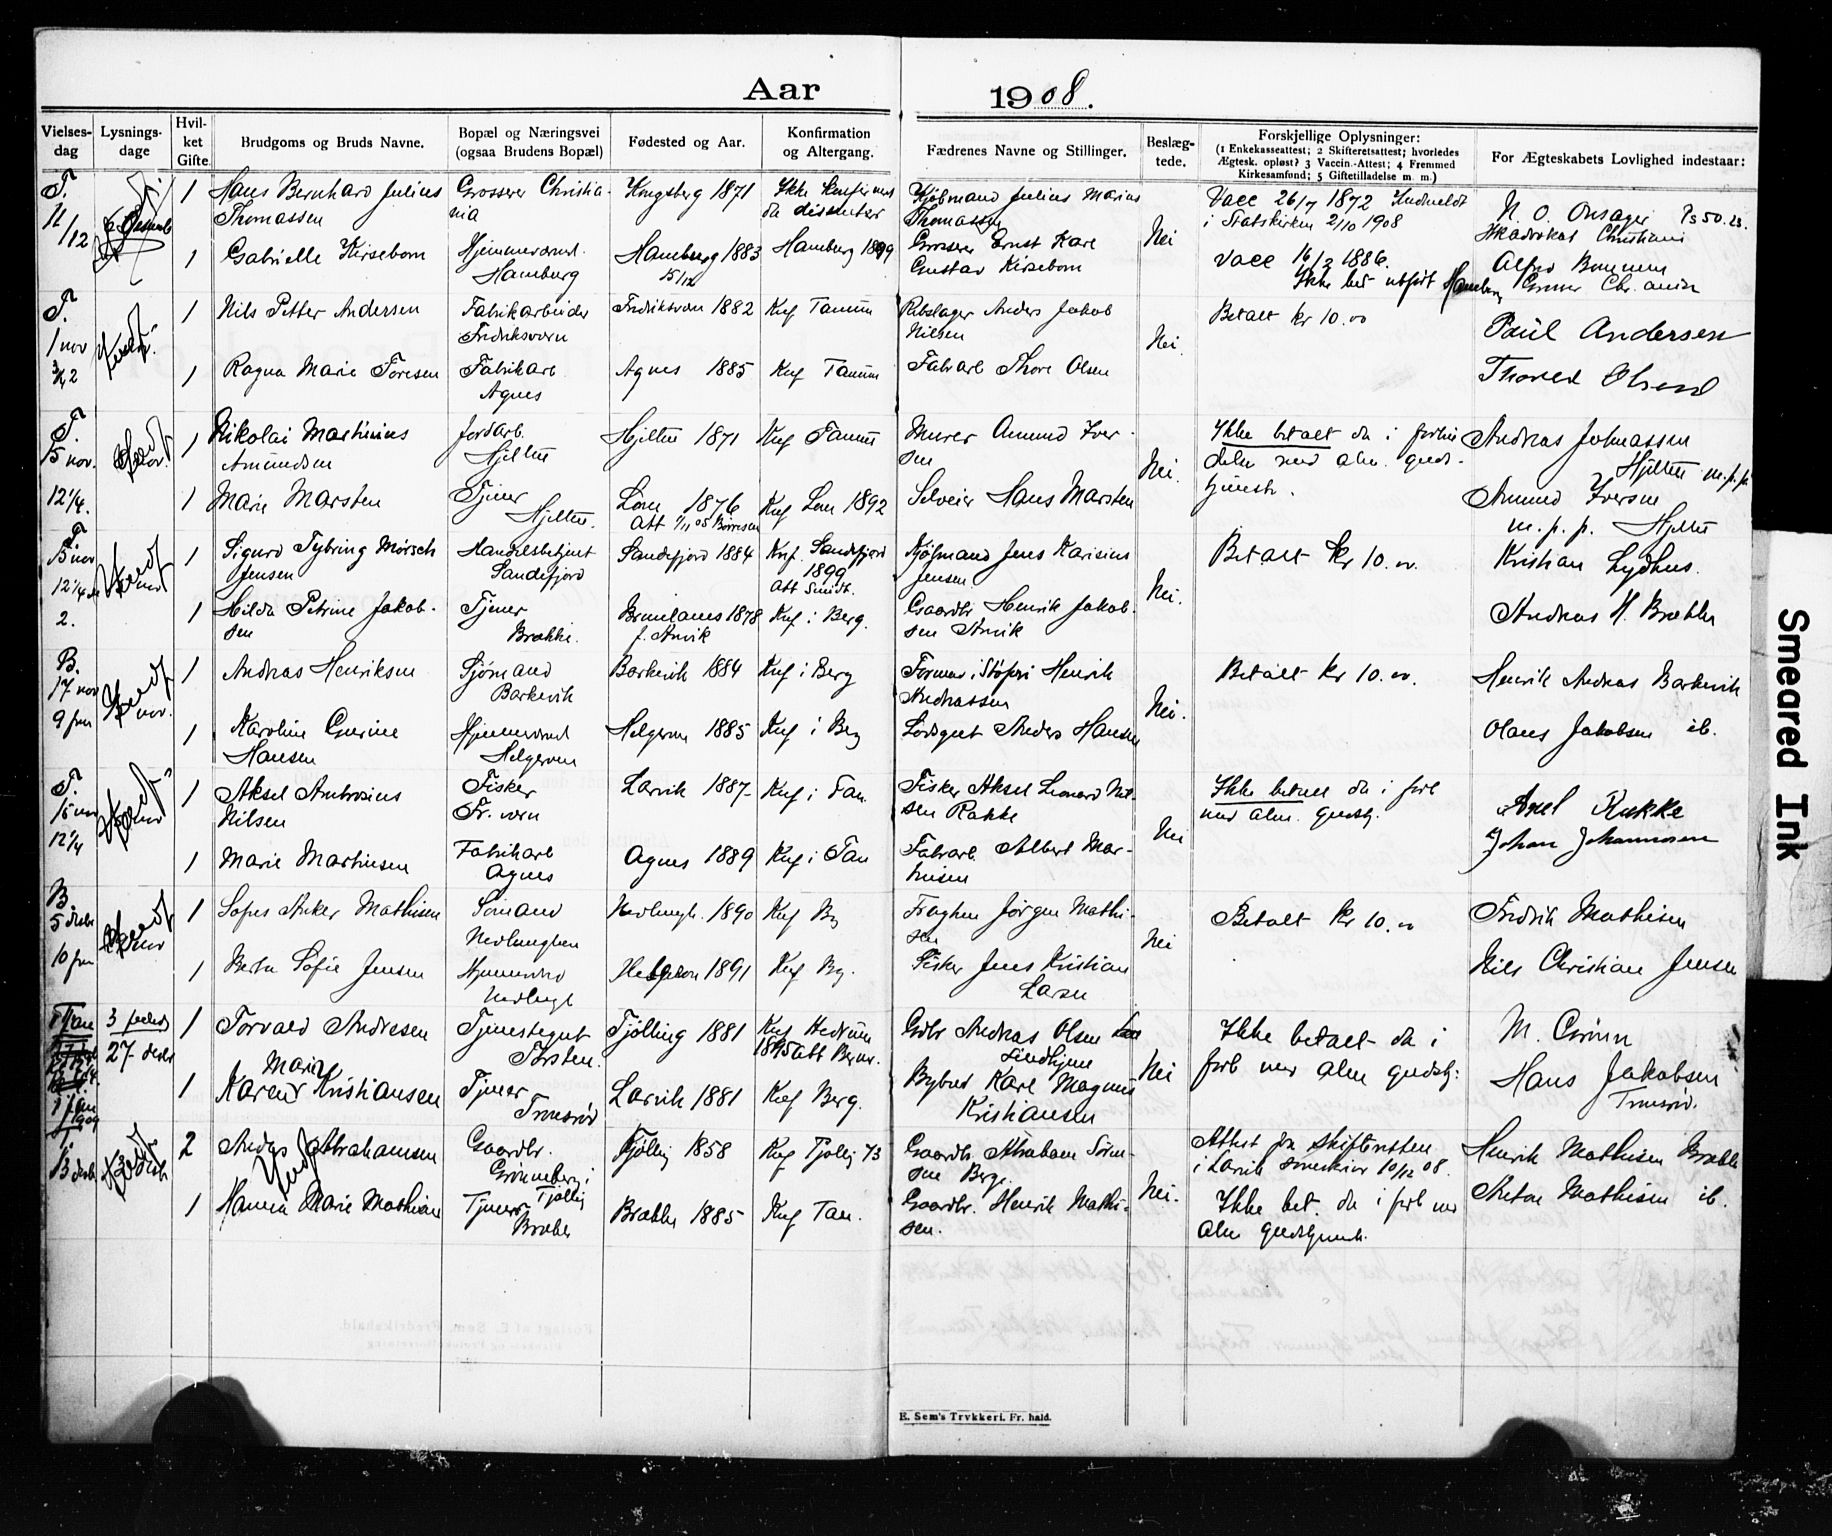 Aar 1908.
Vielses-dag
Lysnings-dage
Hvil-ket Gifte.
Brudgoms og Bruds Navne.
Bopæl og Næringsvei (ogsaa Brudens Bopæl)
Fødested og Aar.
Konfirmation og Altergang.
Fædrenes Navne og Stillinger.
Beslæg-tede.
Forskjellige Oplysninger:
(1 Enkekasseattest; 2 Skifteretsattest; hvorledes
Ægtesk. opløst? 3 Vaccin.-Attest; 4 Fremmed
Kirkesamfund; 5 Giftetilladelse m. m.)
For Ægteskabets Lovlighed indestaar:
T.
11/12
1 Hans Bernhard Julius Thomassen
Grosserer Christiania
Kongsberg 1871
Ikke konfirmert da dissenter
Kjøbmand Julius Marius Thomassen
Nei
Vacc 26/7 1872 Indmeldt
i Statskirken 2/10 1908
N. O. Onsager
1 Gabrielle Kirsebom
Hjemmevrd. Hamburg
Hamburg 1883
5/12
Hamburg 1899
Grosserer Ernst Karl
Gustav Kirsebom
Vacc 16/3 1886.
T.
1 nov
1 Nils Petter Andersen
Fabrikarbeider
Fredriksvern
Fredriksvern 1882
Knf Tanum
Rebslager Anders Jakob
Nilsen
Nei.
Betalt kr 10.00
Paul Andersen
1 Ragna Marie Toresen
Fabrikarb
Agnes
Agnes 1885
Knf Tanum
Fabrarb Thore Olsen
Thorvd Olsen
T.
15 nov.
12 1/4.
1 Nikolai Martinius
Amundsen
Jordarb.
Hjeltn
Hjeltn 1871
Knf Tanum
Murer Amund Iver-
sen
Nei.
Ikke betalt da i forbin
delse med alm. guds-
tjeneste.
Andreas Johnassen
1 Marie Marsten
Tjener
Hjeltn.
Lom 1876
Knf Lom 1892
Selveier Hans Marsten
Amund Iversen
m.p.p. Hjeltn
T
15 nov
1 Sigurd Tybring Mørsch
Jensen
Handelsbetjent
Sandefjord
Sandefjord 1884
Knf. Sandefjord
1899
Kjøbmand Jens Karinius
Jensen
Nei.
Betalt kr 10.00.
Kristian Lydhus.
1 Hilda Petrine Jakob-
sen
Tjener
Brække.
Brunlanes 1878
f. Anvik
Knf i Berg.
Gaardbr Henrik Jakob-
sen Anvik
Andreas H. Brække
B.
17 nov
9 fm
1 Andreas Henriksen
Sjømand
Barkevik
Barkevik 1884
Knf i Berg
Former i Støperi Henrik
Andreassen
Nei.
Betalt kr 10.00.
Henrik Andreas Barkevik
1 Karoline Gurine
Hansen
Hjemmevrd
Helgeroa
Helgeroa 1885
Knf i Berg
Lodsgut Anders Hansen
Olaus Jakobsen ib.
T.
15 nov
12 1/4
1 Aksel Ambrosius
Nilsen
Fisker
Fr. vern
Larvik 1887
Knf i Tan.
Fisker Aksel Leonard Nil-
sen Rakke
Nei
Ikke betalt da i forb
med alm. gudstj.
Axel Rakke
1 Marie Martinsen
Fabrikarb
Agnes
Agnes 1889
Knf i Tan
Fabrarb. Albert Mar-
tinsen
Johan Johannesen
B
5 desbr
10 fm
1 Sofus Anker Mathisen
Sømand
Nevlunghvn
Nevlungh. 1890
Knf Bg
Fragtmn Jørgen Mathi-
sen
Nei
Betalt kr 10.00
Fredrik Mathisen
1 Berta Sofie Jensen
Hjemmevrd
Nevlungh
Helgeroa 1891
Knf Bg.
Fisker Jens Kristian
Larsen
Nils Christian Jensen
1 Jan
1909
27 desbr
1 Torvald Andresen
Tjenestegut
Torsten.
Tjølling 1881
Knf Hedrum
Gdbr Andreas Olsen
Lindhjem
Nei
Ikke betalt da i
forb med alm gudstj:
M. Grønn
1 Karen Marie Kristiansen
Tjener
Tronsrød
Larvik 1881
Knf Berg.
Bybud Karl Magnus
Kristiansen
Hans Jakobsen
Tronsrød.
13 desbr
2 Anders Abrahamsen
Gaardbr.
Grønneberg i
Tjølling
Tjølling 1858
Knf Tjøllg 73
Gaardbr Abraham Søren-
sen Berge
Nei.
Attest fra skifteretten
i Larvik 10/12 08.
Henrik Mathisen Brække
1 Hanna Marie Mathisen
Tjener
Brække
Brække 1885
Knf Tan.
Gaardbr. Henrik Mathi-
sen.
Ikke bet. da i forb med
alm gudstjeneste.
Anton Mathisen ib.
E. Sem's Trykkeri. Fr. hald.
Smeared Ink